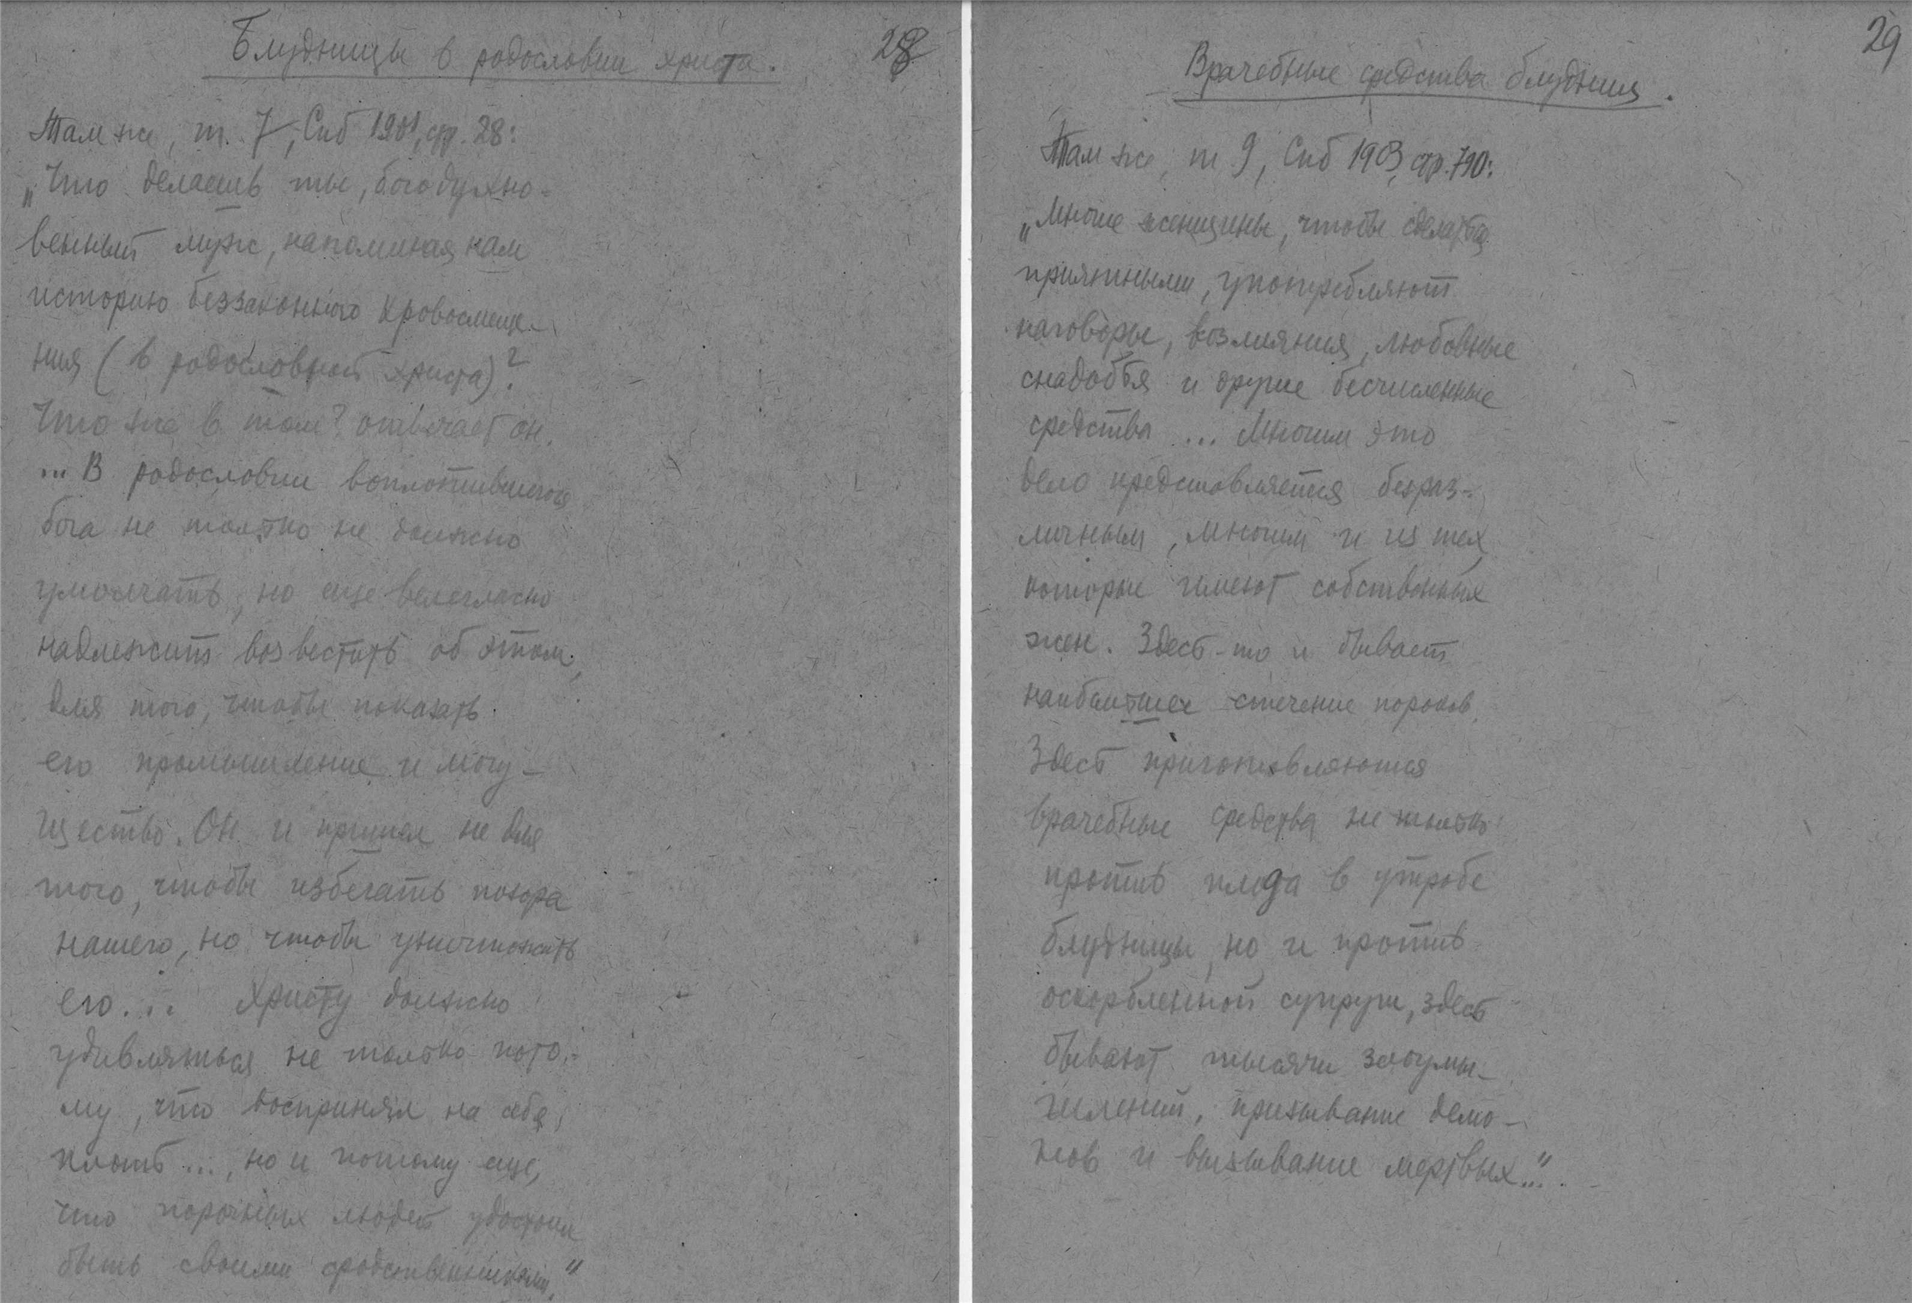 28
Блудницы в родословии христа.
Там же, т. 7, Спб 1901, стр. 28:
„Что делаешь ты, богодухно-
венный муж, напоминая нам
историю беззаконного кровосмеше-
ния (в родословной христа)?
Что же в том? отвечает он.
... В родословии воплотившегося
бога не только не должно
умолчать, но еще велегласно
надлежит возвестить об этом,
для того, чтобы показать
его промышление и могу-
щество. Он и пришел не для
того, чтобы избегать позора
нашего, но чтобы уничтожить
его... Христу должно
удивляться не только пото-
му, что воспринял на себя
плоть..., но и потому еще,
что порочных людей удостоил
быть своими сродственниками."
29
Врачебные средства блудниц.
Там же, т 9, Спб 1903, стр. 790:
„Многие женщины, чтобы сделаться
приятными, употребляют
наговоры, возлияния, любовные
снадобья и другие бесчисленные
средства ... Многим это
дело представляется безраз-
личным, многим и из тех,
которые имеют собственных
жен. Здесь-то и бывает
наибольшее стечение пороков.
Здесь приготовляются
врачебные средства не только
против плода в утробе
блудницы, но и против
оскорбленной супруги, здесь
бывают тысячи злоумы-
шлений, призывание демо-
нов и вызывание мертвых..."